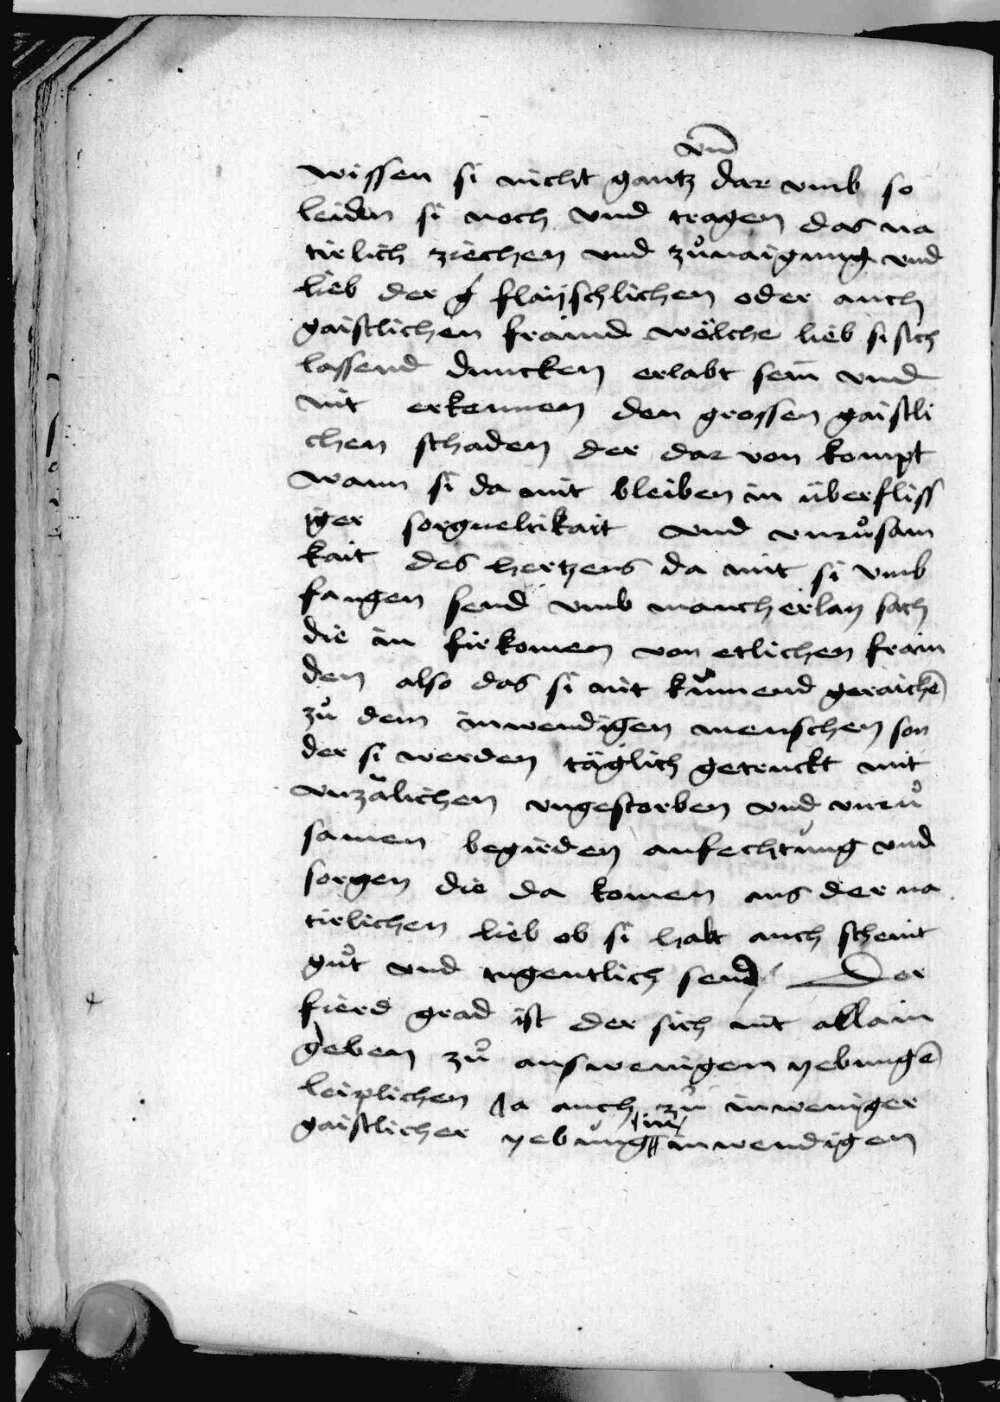 vnd
wissen si nicht gantz dar vmb so
leiden si noch vnd tragen das na
tirlich ziechen vnd zůnaigung vnd
lieb der g flaijschlichen oder auch
gaistlichen fraind wölche lieb si sich
lassend duncken erlabt sein vnd
nit erkennen den grossen gaistli
chen schaden der dar von kompt
wann si da mit bleiben in überfliss
iger sorgueltikait vnd vnrůsam
kait des hertzens da mit si vmb
fangen send vmb mancherlay sach
die in fir komen von etlichen frain
den also das si nit kumend geraichē
zů dem inwendigen menschen son
der si werden täglich getruckt mit
vnzälichen vngestorben vnd vnrů
samen begirden anfechtung vnd
sorgen die da komen aus der na
tirlichen lieb ob si halt auch scheint
gůt vnd tugentlich send Der
fierd grad ist der sich nit allain
geben zů auswenigen yebungē
leiplichen Ja auch zů inweniger
in
gaistlicher yebung inwendigen